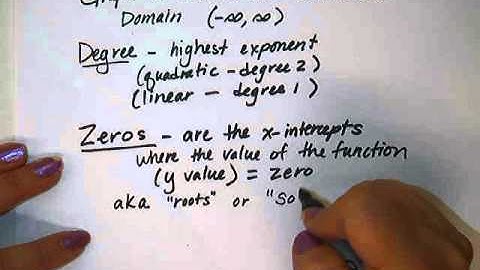 Domain (-∞, ∞)
Degree - highest exponent
(quadratic - degree 2)
(linear - degree 1)
Zeros - are the x-intercepts
where the value of the function
(y value) = zero
aka "roots" or "So